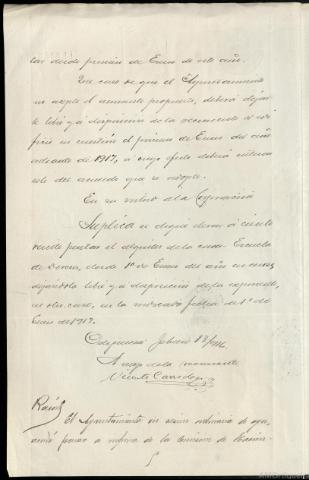 tas desde primero de Enero de este año.
En caso de que el Ayuntamiento
no acepte el aumento propuesto, deberá dejar
le libre y á disposicion de la recurrente el edi
ficio en cuestión el primero de Enero del año
de 1917, á cuyo efecto deberá
del acuerdo que se adopte.
En su virtud á la Corporación
Suplica se digne elevar á ciento
veinte pesetas el alquiler de la casa Escuela
de , desde 1º de Enero del año en curso,
dejándola libre y á disposición de la exponente,
en otro caso, en la indicada fecha de 1º de
Enero de 1917.
Febrero 18/916
A ruego de la recurrente
Vicente
El Ayuntamiento en sesión ordinaria de ayer,
acordó pasar a informe de la Comisión de